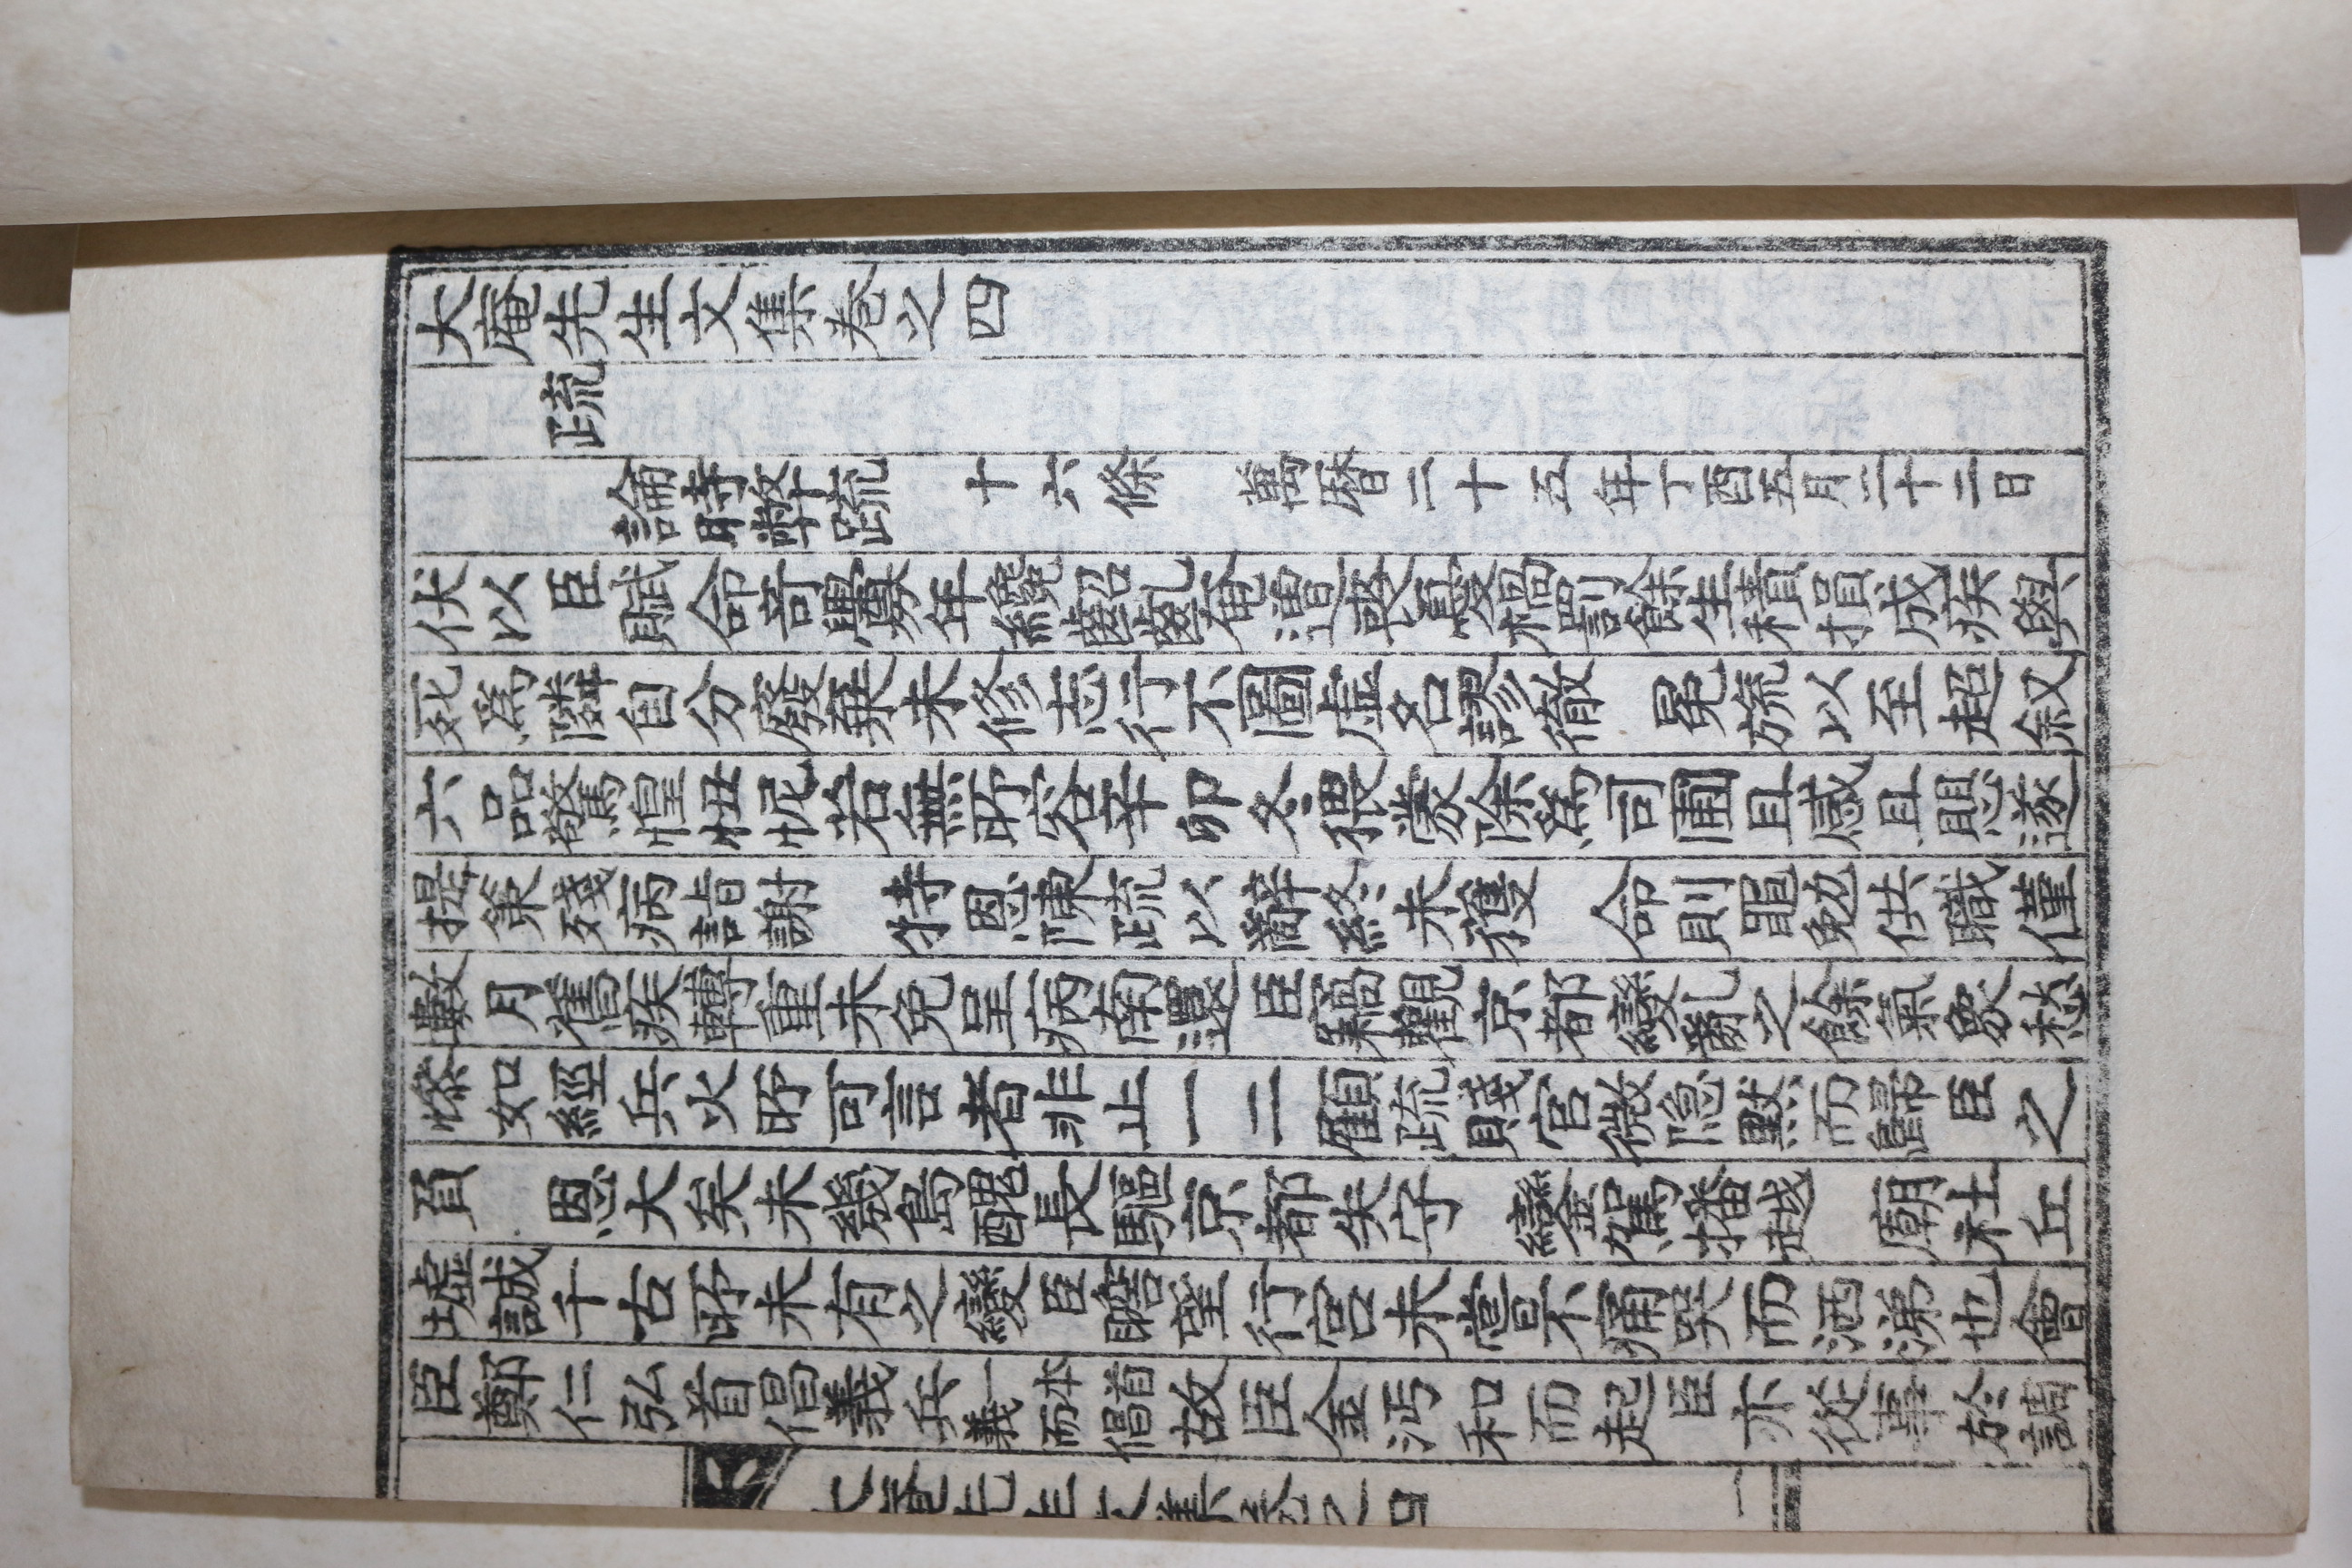 大庵先生文集卷之四
疏
論時弊疏 十六條 萬曆二十五年丁酉五月二十二日
伏以臣賦命奇釁弱年纔齠齔奄遭喪憂禍罰餘生積損成疾與
死爲隣自分廢棄未修志行不圖虛名謬徹 冕旒以至超叙
六品驚惶忸怩若無所容辛卯冬猥蒙除爲司圃且感且思遂
提策殘病詣謝 特恩陳疏以辭終未獲 命則黽勉供職僅
數月舊疾轉重未免呈病南還臣竊觀京都變亂之餘氣象愁
慘如經兵火所可言者非止一二顧疏賤官微隐默而歸臣之
負 恩大矣未幾島醜長驅京都失守 鑾駕播越 廟社丘
墟誠千古所未有之變臣瞻望行宮未嘗不痛哭而洒涕也會
臣鄭仁弘首倡義兵一本首義而倡故臣金沔和而起臣亦從事於調
大庵先生文集卷之四 一